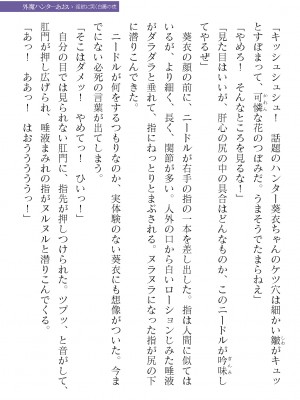 「キッシュシュシュ！　話題のハンター葵衣ちゃんのケツ穴は細かい皺がキュッ
とすぼまって、可憐な花のつぼみだ。うまそうでたまらねえ」
「やめろ！　そんなところを見るな！」
「見た目はいいが、肝心の尻の中の具合はどんなものか、このニードルが吟味し
てやるぜ」
葵衣の顔の前に、ニードルが右手の指の一本を差し出した。指は人間に似ては
いるが、より細く、長く、関節が多い。人外の口から白いローションじみた唾液
がダラダラと垂れて、指にねっとりとまぶされる。ヌラヌラになった指が尻の下
に潜りこんできた。
ニードルが何をするつもりなのか、実体験のない葵衣にも想像がついた。今ま
でにない必死の言葉が出てしまう。
「そこはダメッ！　やめてっ！　ひいっ！」
自分の目では見られない肛門に、指先が押しつけられた。ツプッ、と音がして、
肛門が押し広げられ、唾液まみれの指がヌルヌルと潜りこんでくる。
「あっ！　あああっ！　はおうううううっ！」